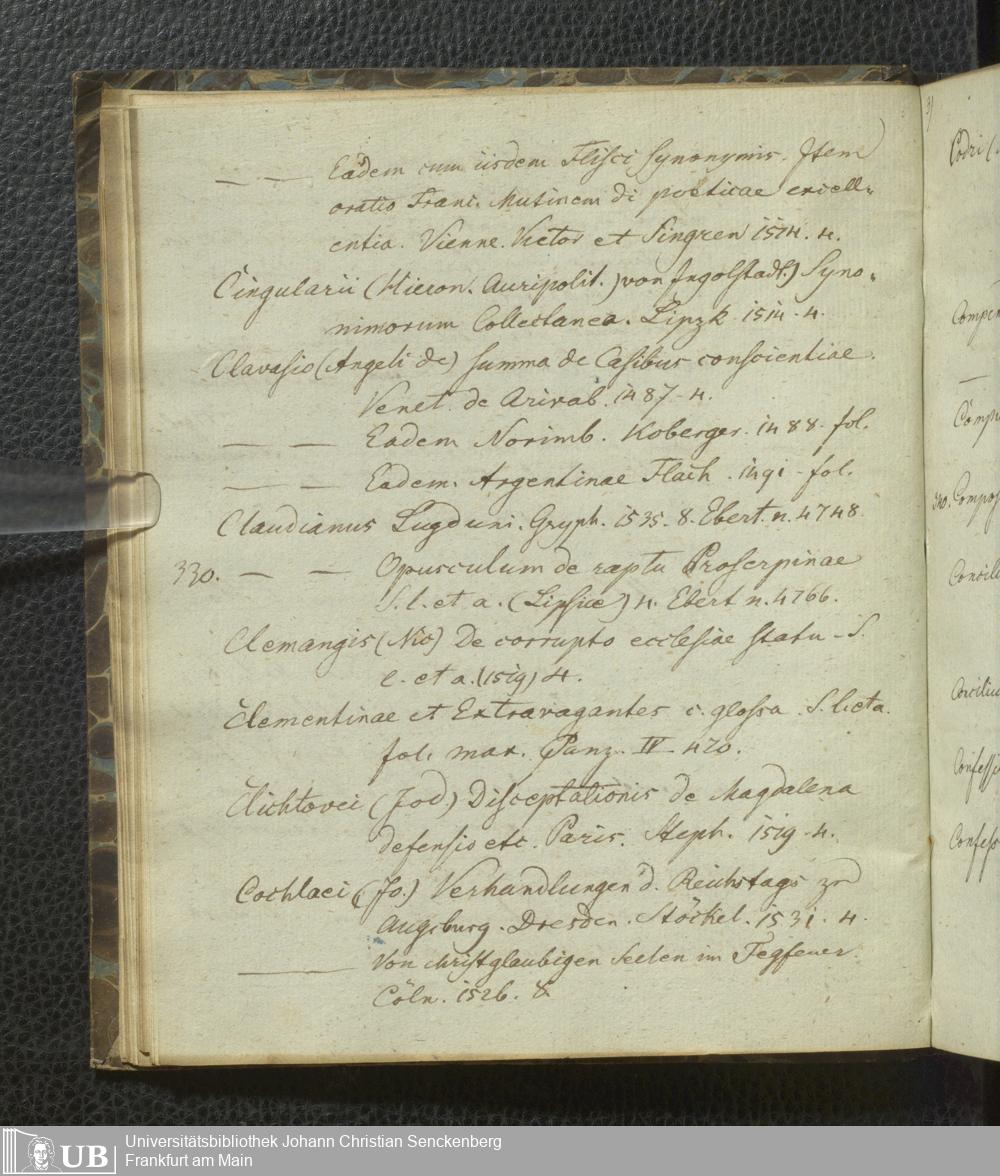 — — Eadem cum iisdem Flisci Synonymis. Item
oratio Franc. Mutinem di poeticae excell-
entia. Vienne. Victor et Singren 1514. 4.
Cingularii (Hieron. Auripolit.) von Ingolstadt.) Syno-
nimorum Collectanea. Lipzk 1514. 4.
Clavasio (Angeli de) Summa de Casibus conscientiae.
Venet. de Arivab. 1487. 4.
— — Eadem Norimb. Koberger. 1488. fol.
— — Eadem. Argentinae Flach. 1491. fol.
Claudianus Lugduni. Gryph. 1535. 8. Ebert. n. 4748.
330. — — Opusculum de raptu Proserpinae
S. l. et a. (Lipsiae) 4. Ebert n. 4766.
Clemangis (Nic) De corrupto ecclesiae statu - S.
l. et a. (1519) 4.
Clementinae et Extravagantes c. glossa. S. l. et a.
fol. max. Panz. IV. 420.
Clichtovei (Jod.) Disceptationis de Magdalena
defensio etc. Paris. Steph. 1519. 4.
Cochlaei (Jo.) Verhandlungen d. Reichstags zu
Augsburg. Dresden. Stöckel. 1531. 4.
— Von christglaubigen Seelen im Fegfeuer.
Cöln. 1526. 8
31
Codri (
Compen
—
Comp
340. Compos
Concili
Conciliu
Confessi
Confess
UB
Universitätsbibliothek Johann Christian Senckenberg
Frankfurt am Main